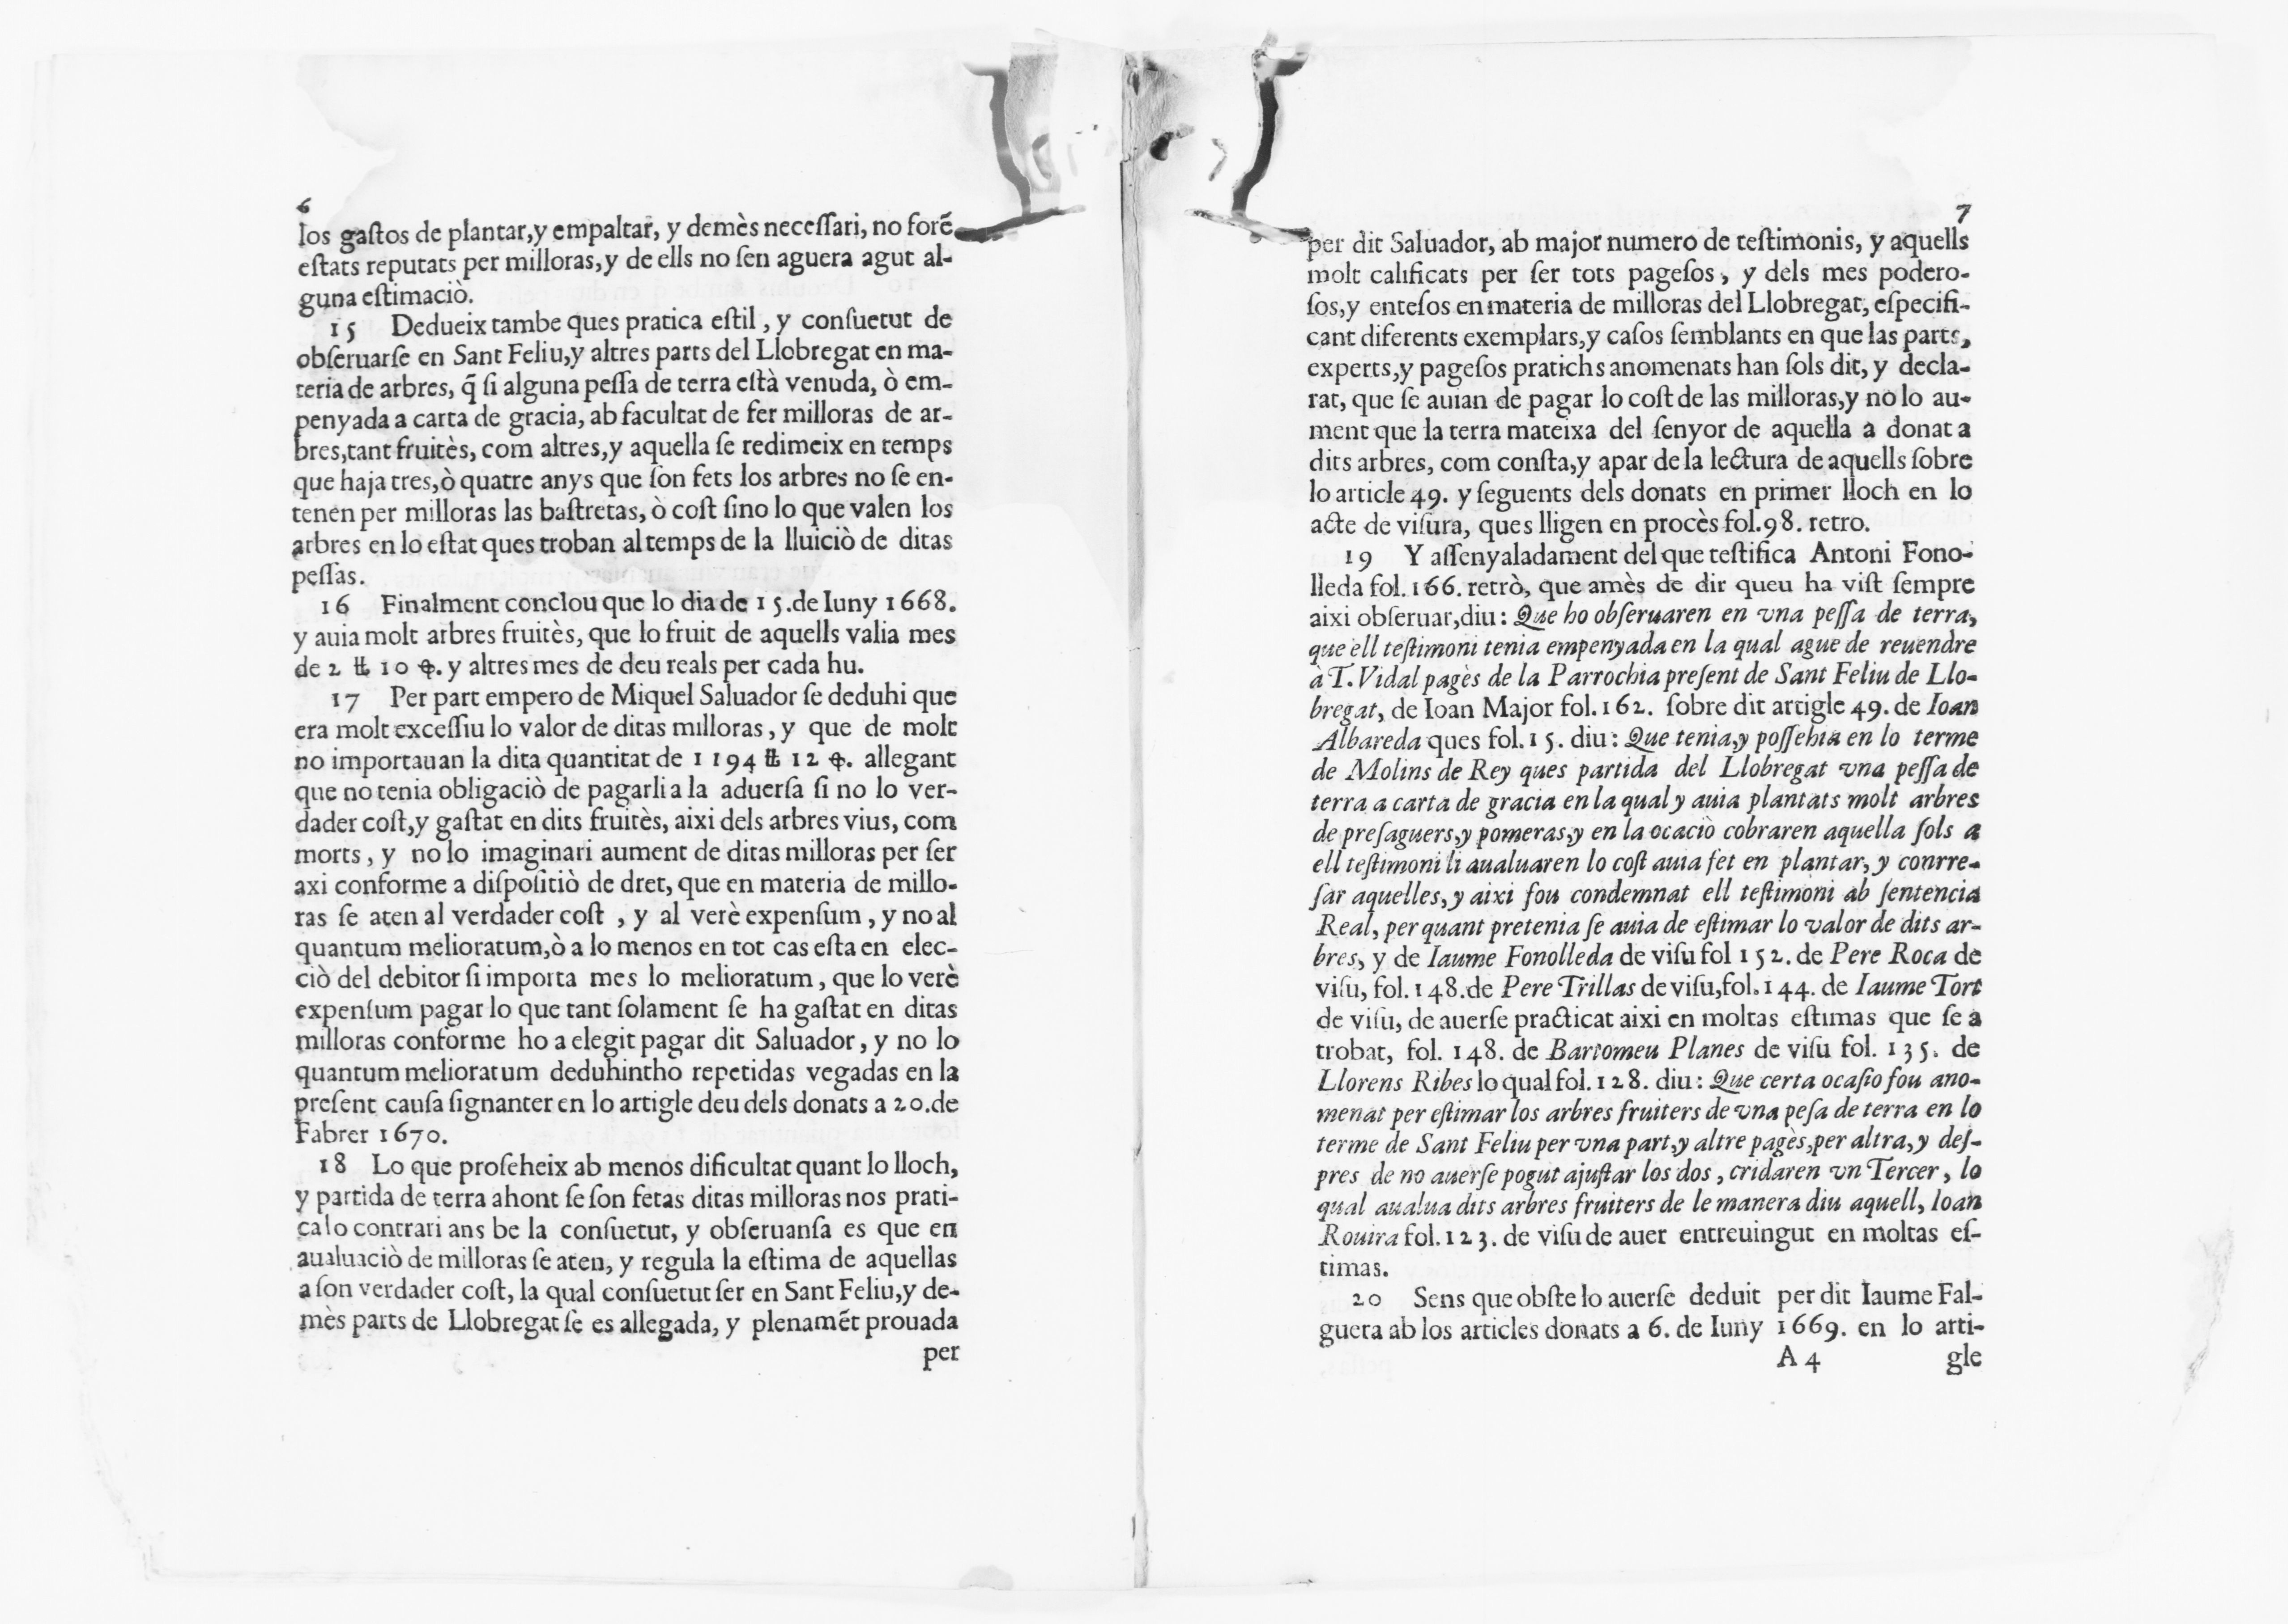 6
los gaſtos de plantar,y empaltar, y demès neceſſari, no forẽ
eſtats reputats per milloras,y de ells no ſen aguera agut al-
guna eſtimaciò.
15 Dedueix tambe ques pratica eſtil , y conſuetut de
obſeruarſe en Sant Feliu,y altres parts del Llobregat en ma-
teria de arbres, q̃ ſi alguna peſſa de terra eſtà venuda, ò em-
penyada a carta de gracia, ab facultat de fer milloras de ar-
bres,tant fruitès, com altres,y aquella ſe redimeix en temps
que haja tres,ò quatre anys que ſon fets los arbres no ſe en-
tenen per milloras las baſtretas, ò coſt ſino lo que valen los
arbres en lo eſtat ques troban al temps de la lluiciò de ditas
peſſas.
16 Finalment conclou que lo dia de 15.de Iuny 1668.
y auia molt arbres fruitès, que lo fruit de aquells valia mes
de 2 ₶ 10 ꝕ. y altres mes de deu reals per cada hu.
17 Per part empero de Miquel Saluador ſe deduhi que
era molt exceſſiu lo valor de ditas milloras , y que de molt
no importauan la dita quantitat de 1194 ₶ 12 ꝕ. allegant
que no tenia obligaciò de pagarli a la aduerſa ſi no lo ver-
dader coſt,y gaſtat en dits fruitès, aixi dels arbres vius, com
morts , y no lo imaginari aument de ditas milloras per ſer
axi conforme a diſpoſitiò de dret, que en materia de millo-
ras ſe aten al verdader coſt , y al verè expenſum , y no al
quantum melioratum,ò a lo menos en tot cas eſta en elec-
ciò del debitor ſi importa mes lo melioratum , que lo verè
expenſum pagar lo que tant ſolament ſe ha gaſtat en ditas
milloras conforme ho a elegit pagar dit Saluador , y no lo
quantum melioratum deduhintho repetidas vegadas en la
preſent cauſa ſignanter en lo artigle deu dels donats a 20.de
Fabrer 1670.
18 Lo que proſeheix ab menos dificultat quant lo lloch,
y partida de terra ahont ſe ſon fetas ditas milloras nos prati-
ca lo contrari ans be la conſuetut, y obſeruanſa es que en
aualuaciò de milloras ſe aten, y regula la eſtima de aquellas
a ſon verdader coſt, la qual conſuetut ſer en Sant Feliu,y de-
mès parts de Llobregat ſe es allegada, y plenamẽt prouada
per
7
per dit Saluador, ab major numero de teſtimonis, y aquells
molt calificats per ſer tots pageſos , y dels mes podero-
ſos,y enteſos en materia de milloras del Llobregat, eſpecifi-
cant diferents exemplars,y caſos ſemblants en que las parts,
experts,y pageſos pratichs anomenats han ſols dit, y decla-
rat, que ſe auian de pagar lo coſt de las milloras,y no lo au-
ment que la terra mateixa del ſenyor de aquella a donat a
dits arbres, com conſta,y apar de la lectura de aquells ſobre
lo article 49. y ſeguents dels donats en primer lloch en lo
acte de viſura, ques lligen en procès fol.98. retro.
19 Y aſſenyaladament del que teſtifica Antoni Fono-
lleda fol. 166. retrò, que amès de dir queu ha viſt ſempre
aixi obſeruar,diu : Que ho obſeruaren en vna peſſa de terra,
que ell teſtimoni tenia empenyada en la qual ague de reuendre
à T. Vidal pagès de la Parrochia preſent de Sant Feliu de Llo-
bregat, de Ioan Major fol.162. ſobre dit artigle 49. de Ioan
Albareda ques fol.15. diu : Que tenia,y poſſehia en lo terme
de Molins de Rey ques partida del Llobregat vna peſſa de
terra a carta de gracia en la qual y auia plantats molt arbres
de preſaguers,y pomeras,y en la ocaciò cobraren aquella ſols a
ell teſtimoni li aualuaren lo coſt auia fet en plantar, y conrre-
ſar aquelles, y aixi fou condemnat ell teſtimòni ab ſentencia
Real, per quant pretenia ſe auia de eſtimar lo valor de dits ar-
bres, y de Iaume Fonolleda de viſu fol 152. de Pere Roca de
viſu, fol.148.de Pere Trillas de viſu,fol.144. de Iaume Tort
de viſu, de auerſe practicat aixi en moltas eſtimas que ſe a
trobat, fol. 148. de Bartomeu Planes de viſu fol. 135. de
Llorens Ribes lo qual fol.128. diu : Que certa ocaſio fou ano-
menat per eſtimar los arbres fruiters de vna peſa de terra en lo
terme de Sant Feliu per vna part,y altre pagès,per altra,y deſ-
pres de no auerſe pogut ajuſtar los dos , cridaren vn Tercer , lo
qual aualua dits arbres fruiters de le manera diu aquell, Ioan
Rouira fol.123. de viſu de auer entreuingut en moltas eſ-
timas.
20 Sens que obſte lo auerſe deduit per dit Iaume Fal-
guera ab los articles donats a 6. de Iuny 1669. en lo arti-
A 4 gle